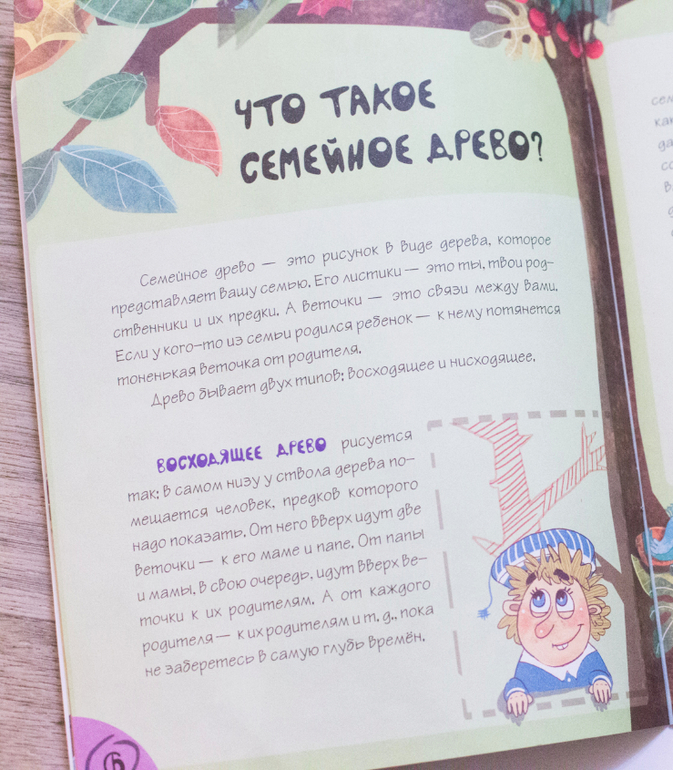 ЧТО ТАКОЕ
СЕМЕЙНОЕ ДРЕВО?
Семейное древо — это рисунок в виде дерева, которое
представляет вашу семью. Его листики — это ты, твои род-
ственники и их предки. А веточки — это связи между вами.
Если у кого-то из семьи родился ребенок — к нему потянется
тоненькая веточка от родителя.
Древо бывает двух типов: восходящее и нисходящее.
ВОСХОДЯЩЕЕ ДРЕВО рисуется
так: в самом низу у ствола дерева по-
мещается человек, предков которого
надо показать. От него вверх идут две
веточки — к его маме и папе. От папы
и мамы, в свою очередь, идут вверх ве-
точки к их родителям. А от каждого
родителя — к их родителям и т. д., пока
не заберетесь в самую глубь времён.
6